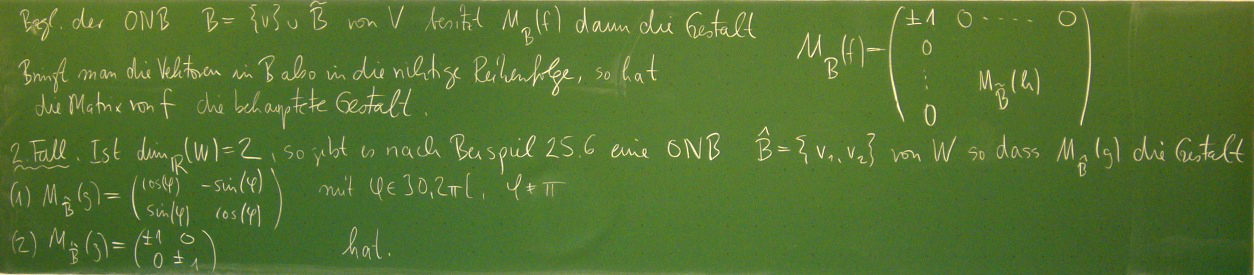 Bzgl. der ONB B = {v} ∪ B̃ von V besitzt M_B(f) dann die Gestalt M_B(f) = (±1 0 ..... 0
0
⋮ M_B̃(h)
0)
Bringt man die Vektoren in B also in die richtige Reihenfolge, so hat
die Matrix von f die behauptete Gestalt.
2. Fall. Ist dim_ℝ(W) = 2, so gibt es nach Beispiel 25.6 eine ONB B̂ = {v₁, v₂} von W so dass M_B̂(g) die Gestalt
(1) M_B̂(g) = (cos(φ) -sin(φ)
sin(φ) cos(φ)) mit φ ∈ ]0, 2π[, φ ≠ π
(2) M_B̂(g) = (±1 0
0 ±1) hat.